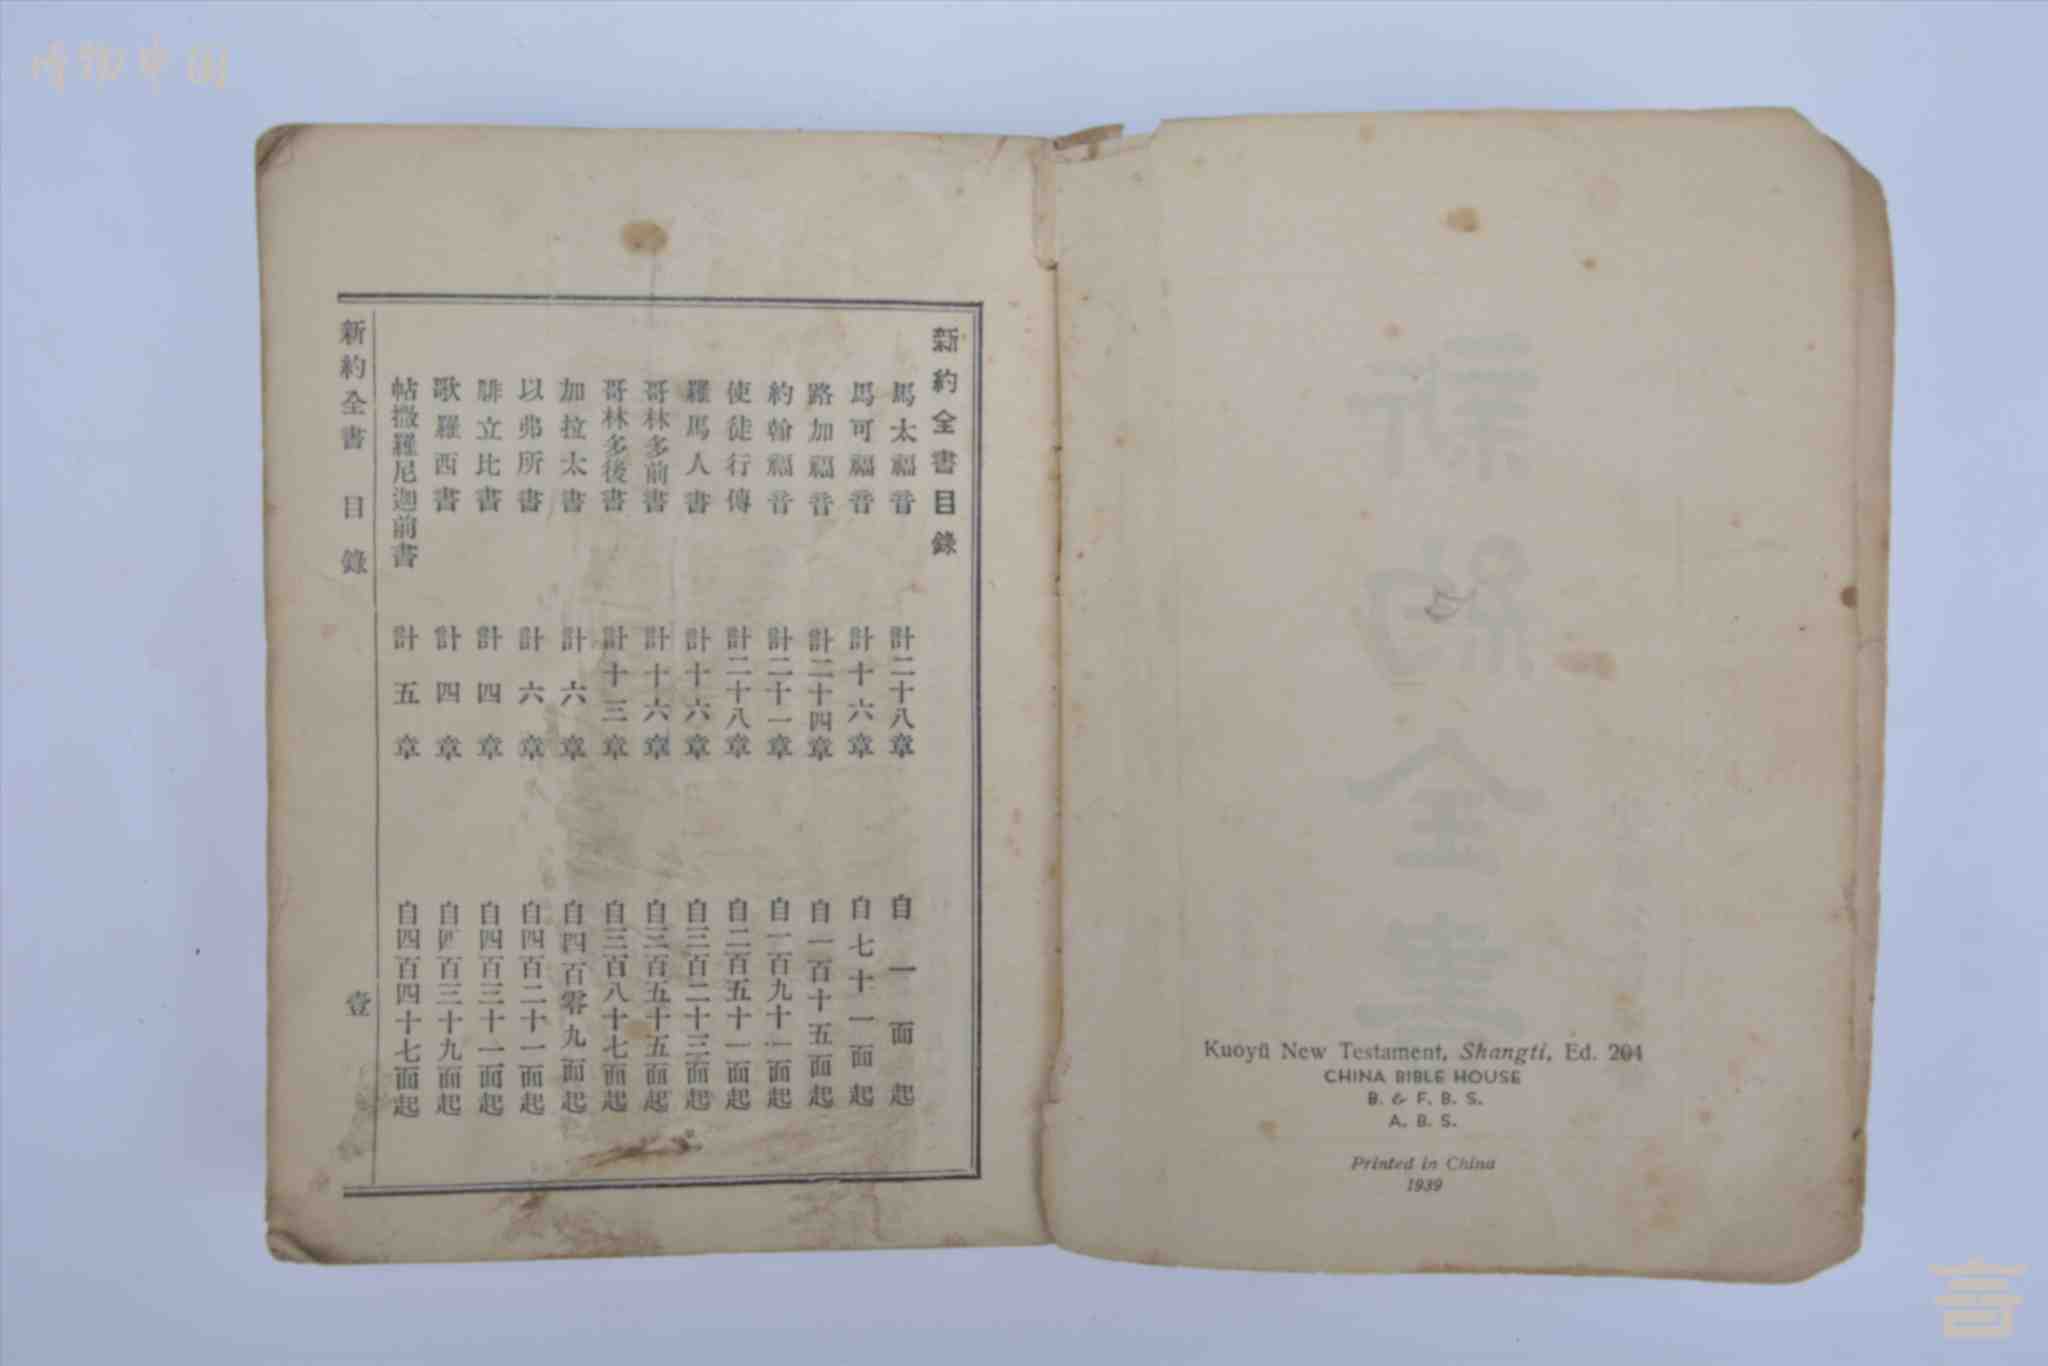 博物中国
新約全書目錄
馬太福音 計二十八章 自一面起
馬可福音 計十六章 自七十一面起
路加福音 計二十四章 自一百十五面起
約翰福音 計二十一章 自一百九十一面起
使徒行傳 計二十八章 自二百五十一面起
羅馬人書 計十六章 自三百二十三面起
哥林多前書 計十六章 自三百五十五面起
哥林多後書 計十三章 自三百八十七面起
加拉太書 計六章 自四百零九面起
以弗所書 計六章 自四百二十一面起
腓立比書 計四章 自四百三十一面起
歌羅西書 計四章 自四百三十九面起
帖撒羅尼迦前書 計五章 自四百四十七面起
新約全書 目錄 壹
新約全書
Kuoyü New Testament, Shangti, Ed. 204
CHINA BIBLE HOUSE
B. & F. B. S.
A. B. S.
Printed in China
1939
言